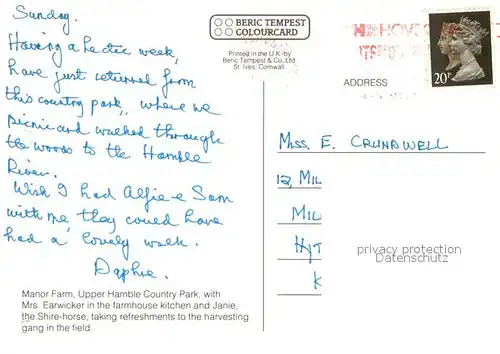 Sunday.
Having a hectic week,
have just returned from
this country park, where we
picnic and walked through
the woods to the Hamble
River.
Wish I had Alfie & Sam
with me, they could have
had a lovely walk.
Daphne.
Manor Farm, Upper Hamble Country Park, with
Mrs. Earwicker in the farmhouse kitchen and Janie,
the Shire-horse, taking refreshments to the harvesting
gang in the field.
BERIC TEMPEST
COLOURCARD
Printed in the U.K. by
Beric Tempest & Co. Ltd
St. Ives, Cornwall
HOVER
20P
ADDRESS
MISS. E. CRUNDWELL
12, MIL
MIL
HYT
K
privacy protection
Datenschutz